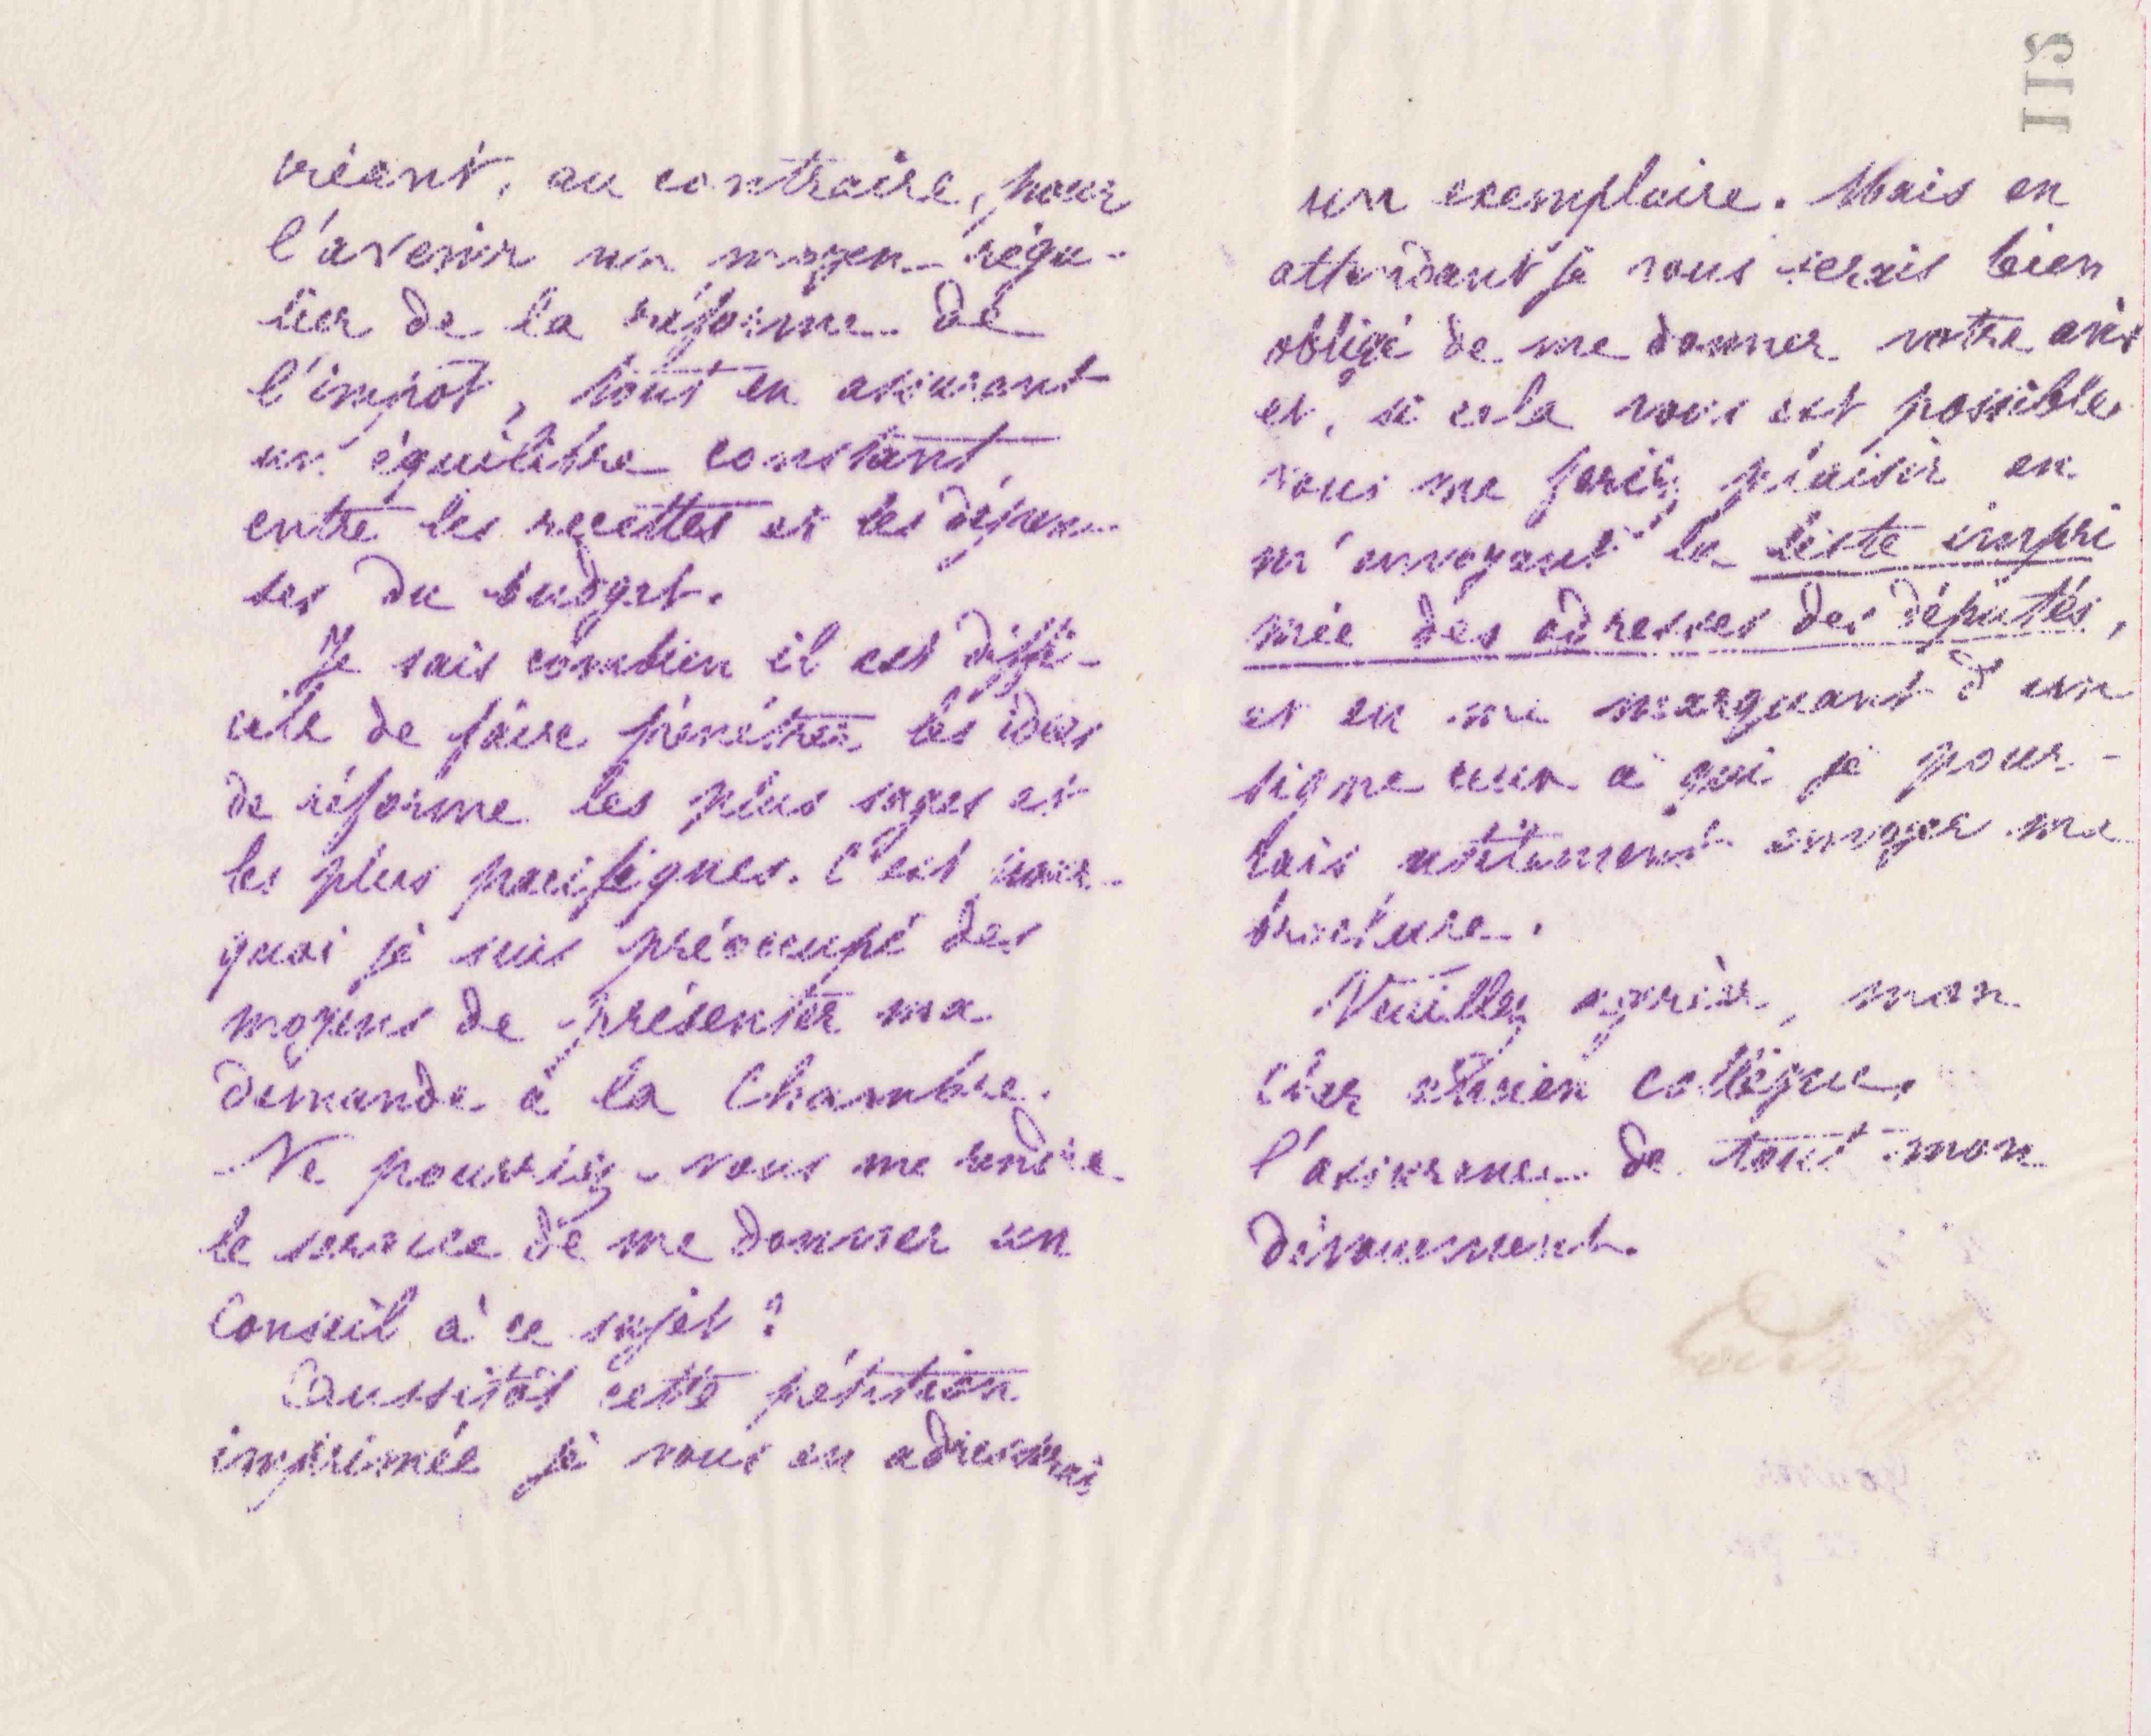 créant, au contraire, pour
l'avenir un moyen régu-
lier de la réforme de
l'impôt, tout en assurant
un équilibre constant
entre les recettes et les dépen-
ses du budget.
Je sais combien il est diffi-
cile de faire pénétrer les idées
de réforme les plus sages et
les plus pacifiques. C'est pour-
quoi je suis préoccupé des
moyens de présenter ma
demande à la Chambre.
Ne pourriez-vous me rendre
le service de me donner un
Conseil à ce sujet ?
Aussitôt cette pétition
imprimée je vous en adresserai
115
un exemplaire. Mais en
attendant je vous serais bien
obligé de me donner votre avis
et, si cela vous est possible
vous me feriez plaisir en
m'envoyant la liste impri
mée des adresses des députés,
et en me marquant d'un
signe ceux à qui je pour-
rais utilement envoyer ma
brochure.
Veuillez agréer, mon
cher ancien collègue,
l'assurance de tout mon
dévouement.
Godin